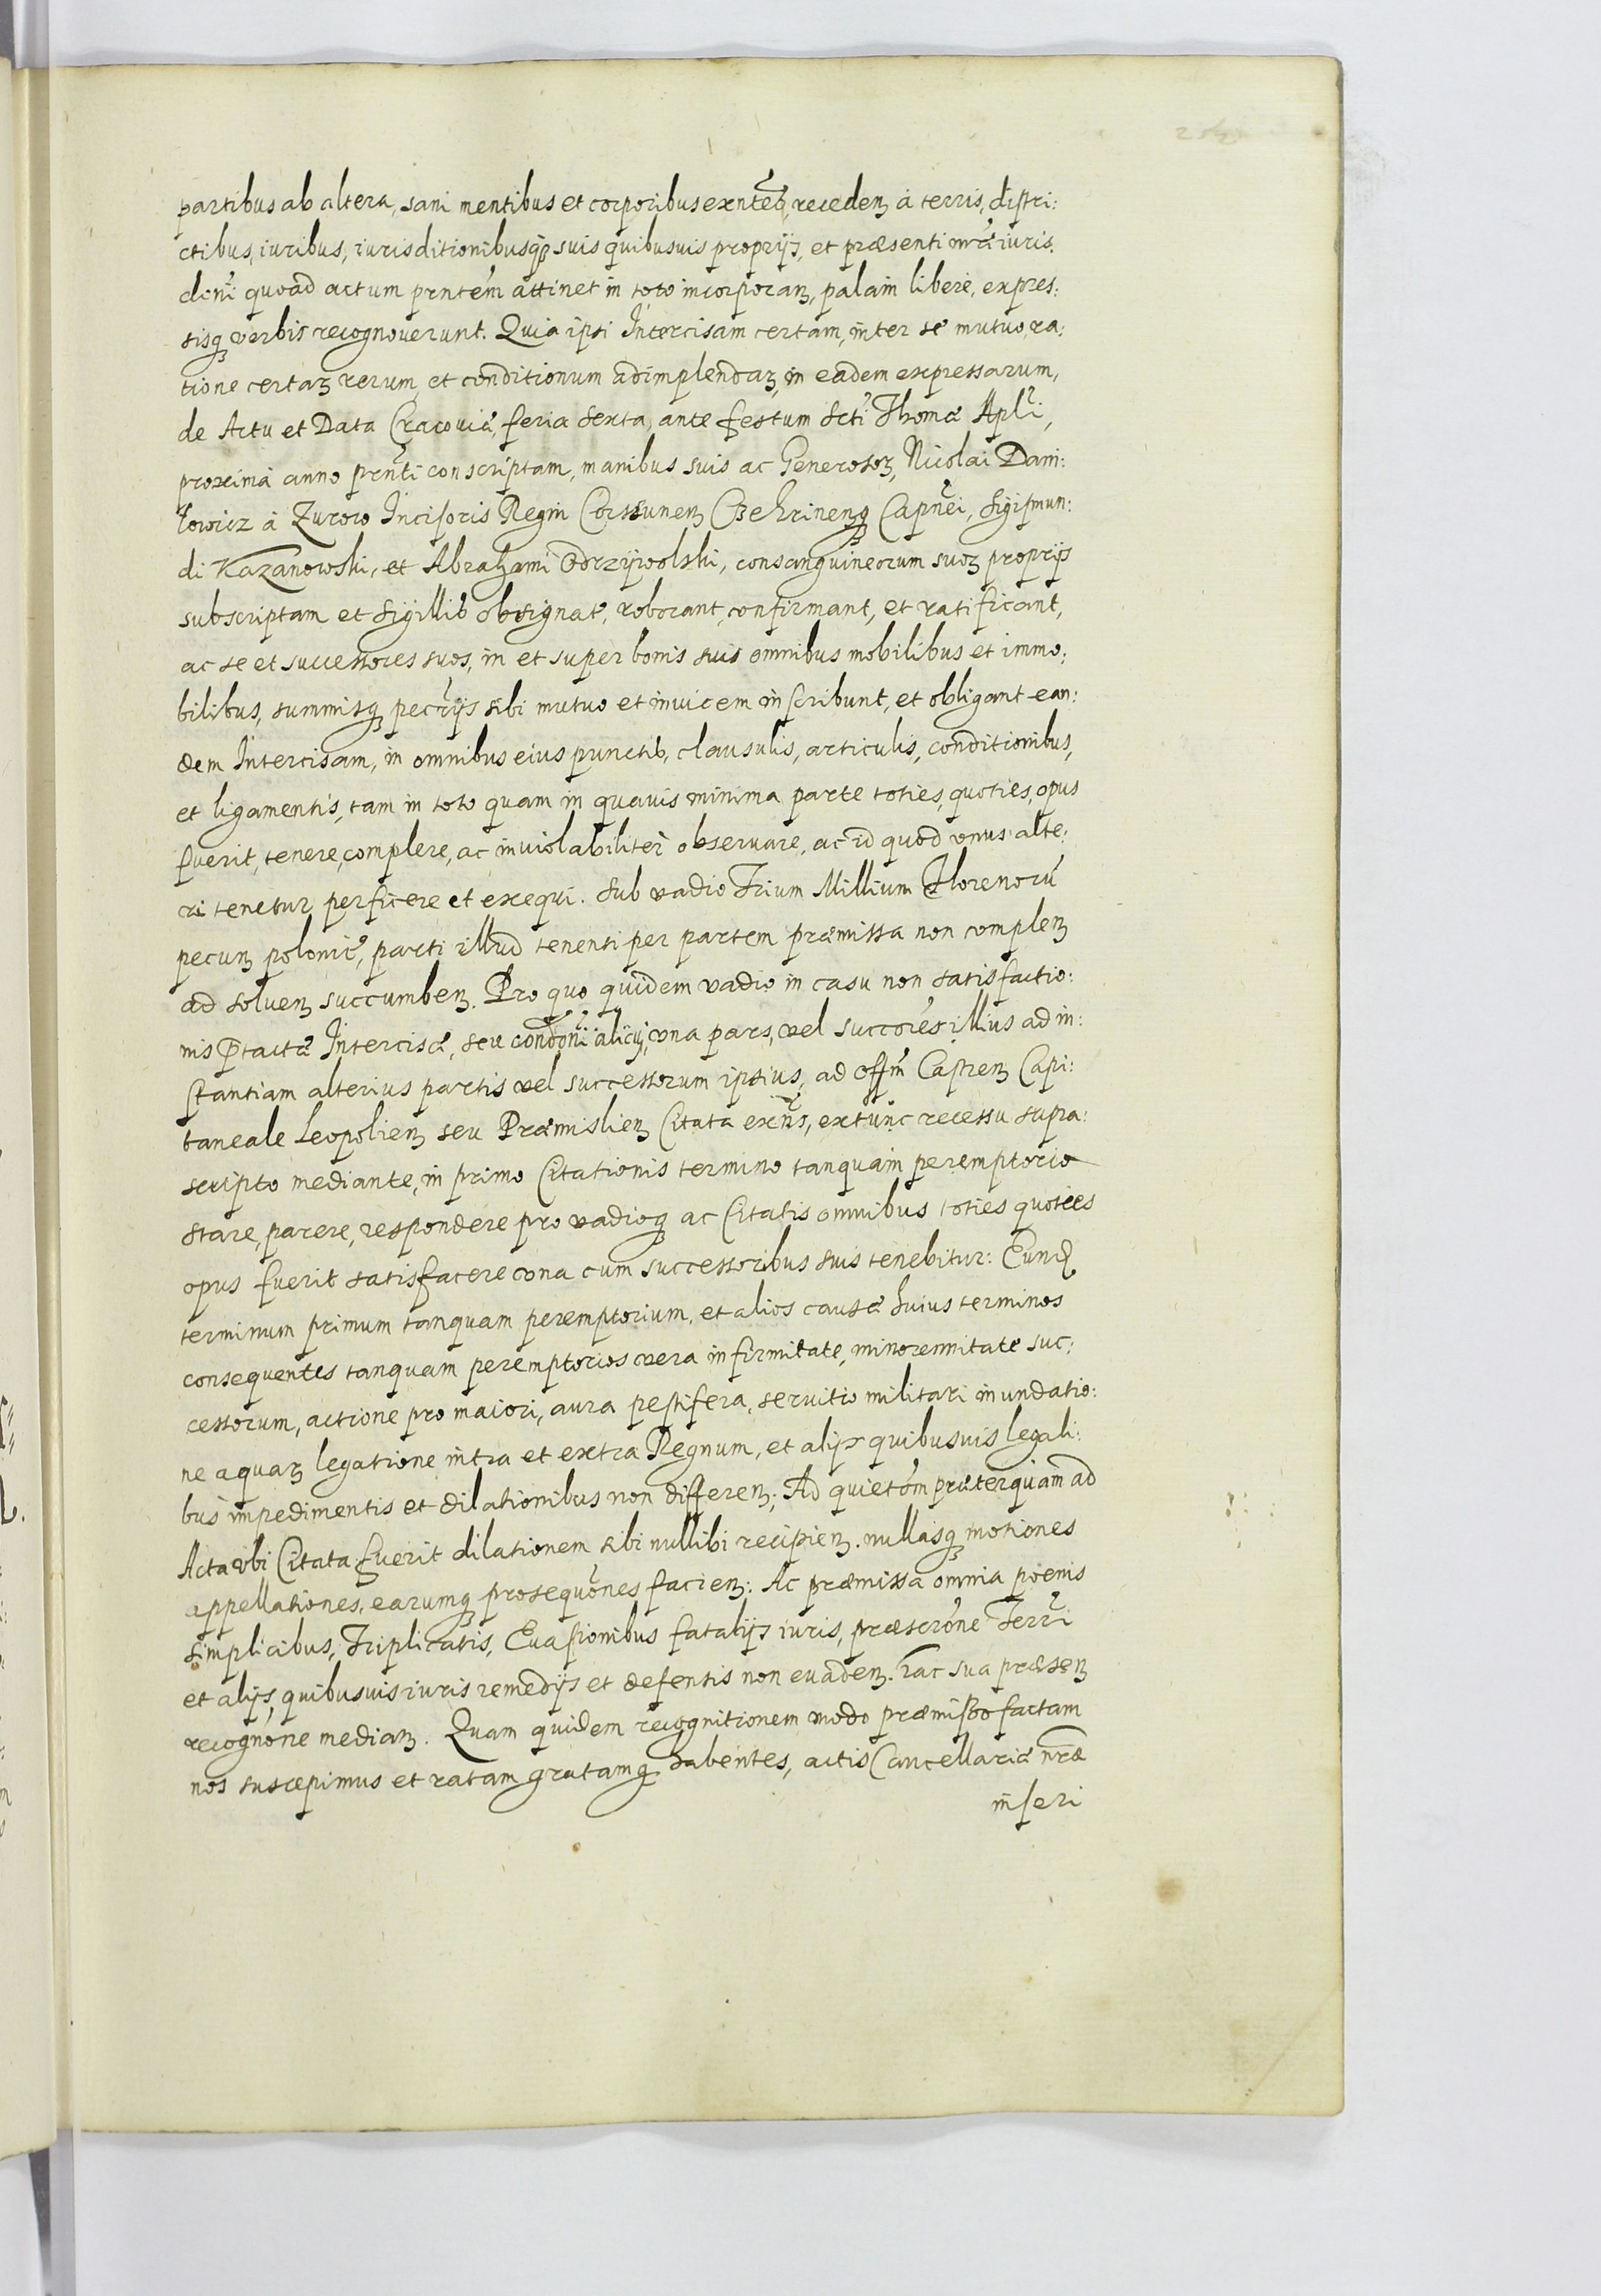 partibus ab altera, sani mentibus et corporibus exñtes, recedenꝫ à terris, distri:
ctibus, iuribus, iurisditionibusqꝫ suis quibusuis proprijs, et præsenti nrã iuris.
dcñi quoad actum prntem̃ attinet in toto incorporanꝫ, palam libere, expres:
sisqꝫ verbis recognouerunt. Quia ipsi Intercisam certam, inter se mutuo, ra:
tione certaꝝ rerum et conditionum adimplendaꝝ, in eadem expressarum,
de Actu et Data Cracouiæ, feria sexta, ante festum Scti Thomæ Apłi,
proxima anno prñti conscriptam, manibus suis ac Generosoꝝ, Nicolai Dani:
łowicz à Zurow Incisoris Regin Corssunenꝫ Czehrinenꝫqꝫ Capnei, Sigismun:
di Kazanowski, et Abrahami Odrzijwolski, consanguineorum suoꝝ proprijs
subscriptam et Sigillis obsignatã, roborant, confirmant, et ratificant,
ac se et successores suos, in et super bonis suis omnibus mobilibus et immo:
bilibus, summisqꝫ pecrijs sibi mutuo et inuicem inscribunt, et obligant ean:
dem Intercisam, in omnibus eius punctis, clausulis, articulis, conditionibus,
et ligamentis, tam in toto quam in quauis minima parte toties, quoties, opus
fuerit, tenere, complere, ac inuiolabiliter obseruare, ac id quod vnus alte:
ri tenetur perficere et exequi. Sub vadio Trium Millium Florenorũ
pecunꝫ polonic̃, parti illud tenenti per partem præmissa non complenꝫ
ad soluenꝫ succumbenꝫ. Pro quo quidem vadio in casu non satisfactio:
nis Ptactæ Intercisæ, seu condõni alicui, vna pars, vel succores illius ad in:
stantiam alterius partis vel successorum ipsius, ad offm̃ Castrenꝫ Capi:
taneale Leopolienꝫ seu Præmislienꝫ Citata exñs, extunc recessu supra:
scripto mediante, in primo Citationis termino tanquam peremptorio
stare, parere, respondere pro vadioqꝫ ac Citatis omnibus toties quoties
opus fuerit satisfacere vna cum successoribus suis tenebitur: Eund̃
terminum primum tanquam peremptorium, et alios causæ huius terminos
consequentes tanquam peremptorios vera infirmitate, minorennitate suc:
cessorum, actione pro maiori, aura pestifera, seruitio militari inundatio:
ne aquaꝝ legatione intra et extra Regnum, et alijs quibusuis legali:
bus impedimentis et dilationibus non differenꝫ; Ad quietõm præterquam ad
Acta vbi Citata fuerit dilationem sibi nullibi recipienꝫ. nullasqꝫ motiones
appellationes, earumqꝫ prosequõnes facienꝫ: Ac præmissa omnia pœnis
simplicibus, Triplicatis, Euasionibus fatalijs iuris, præscrõne Terrĩ
et alijs, quibusuis iuris remedijs et defensis non euadenꝫ. Hac sua præsenꝫ
recognõne medianꝫ. Quam quidem recognitionem modo præmisso factam
nos suscepimus et ratam gratamqꝫ habentes, actis Cancellariæ nræ
inseri